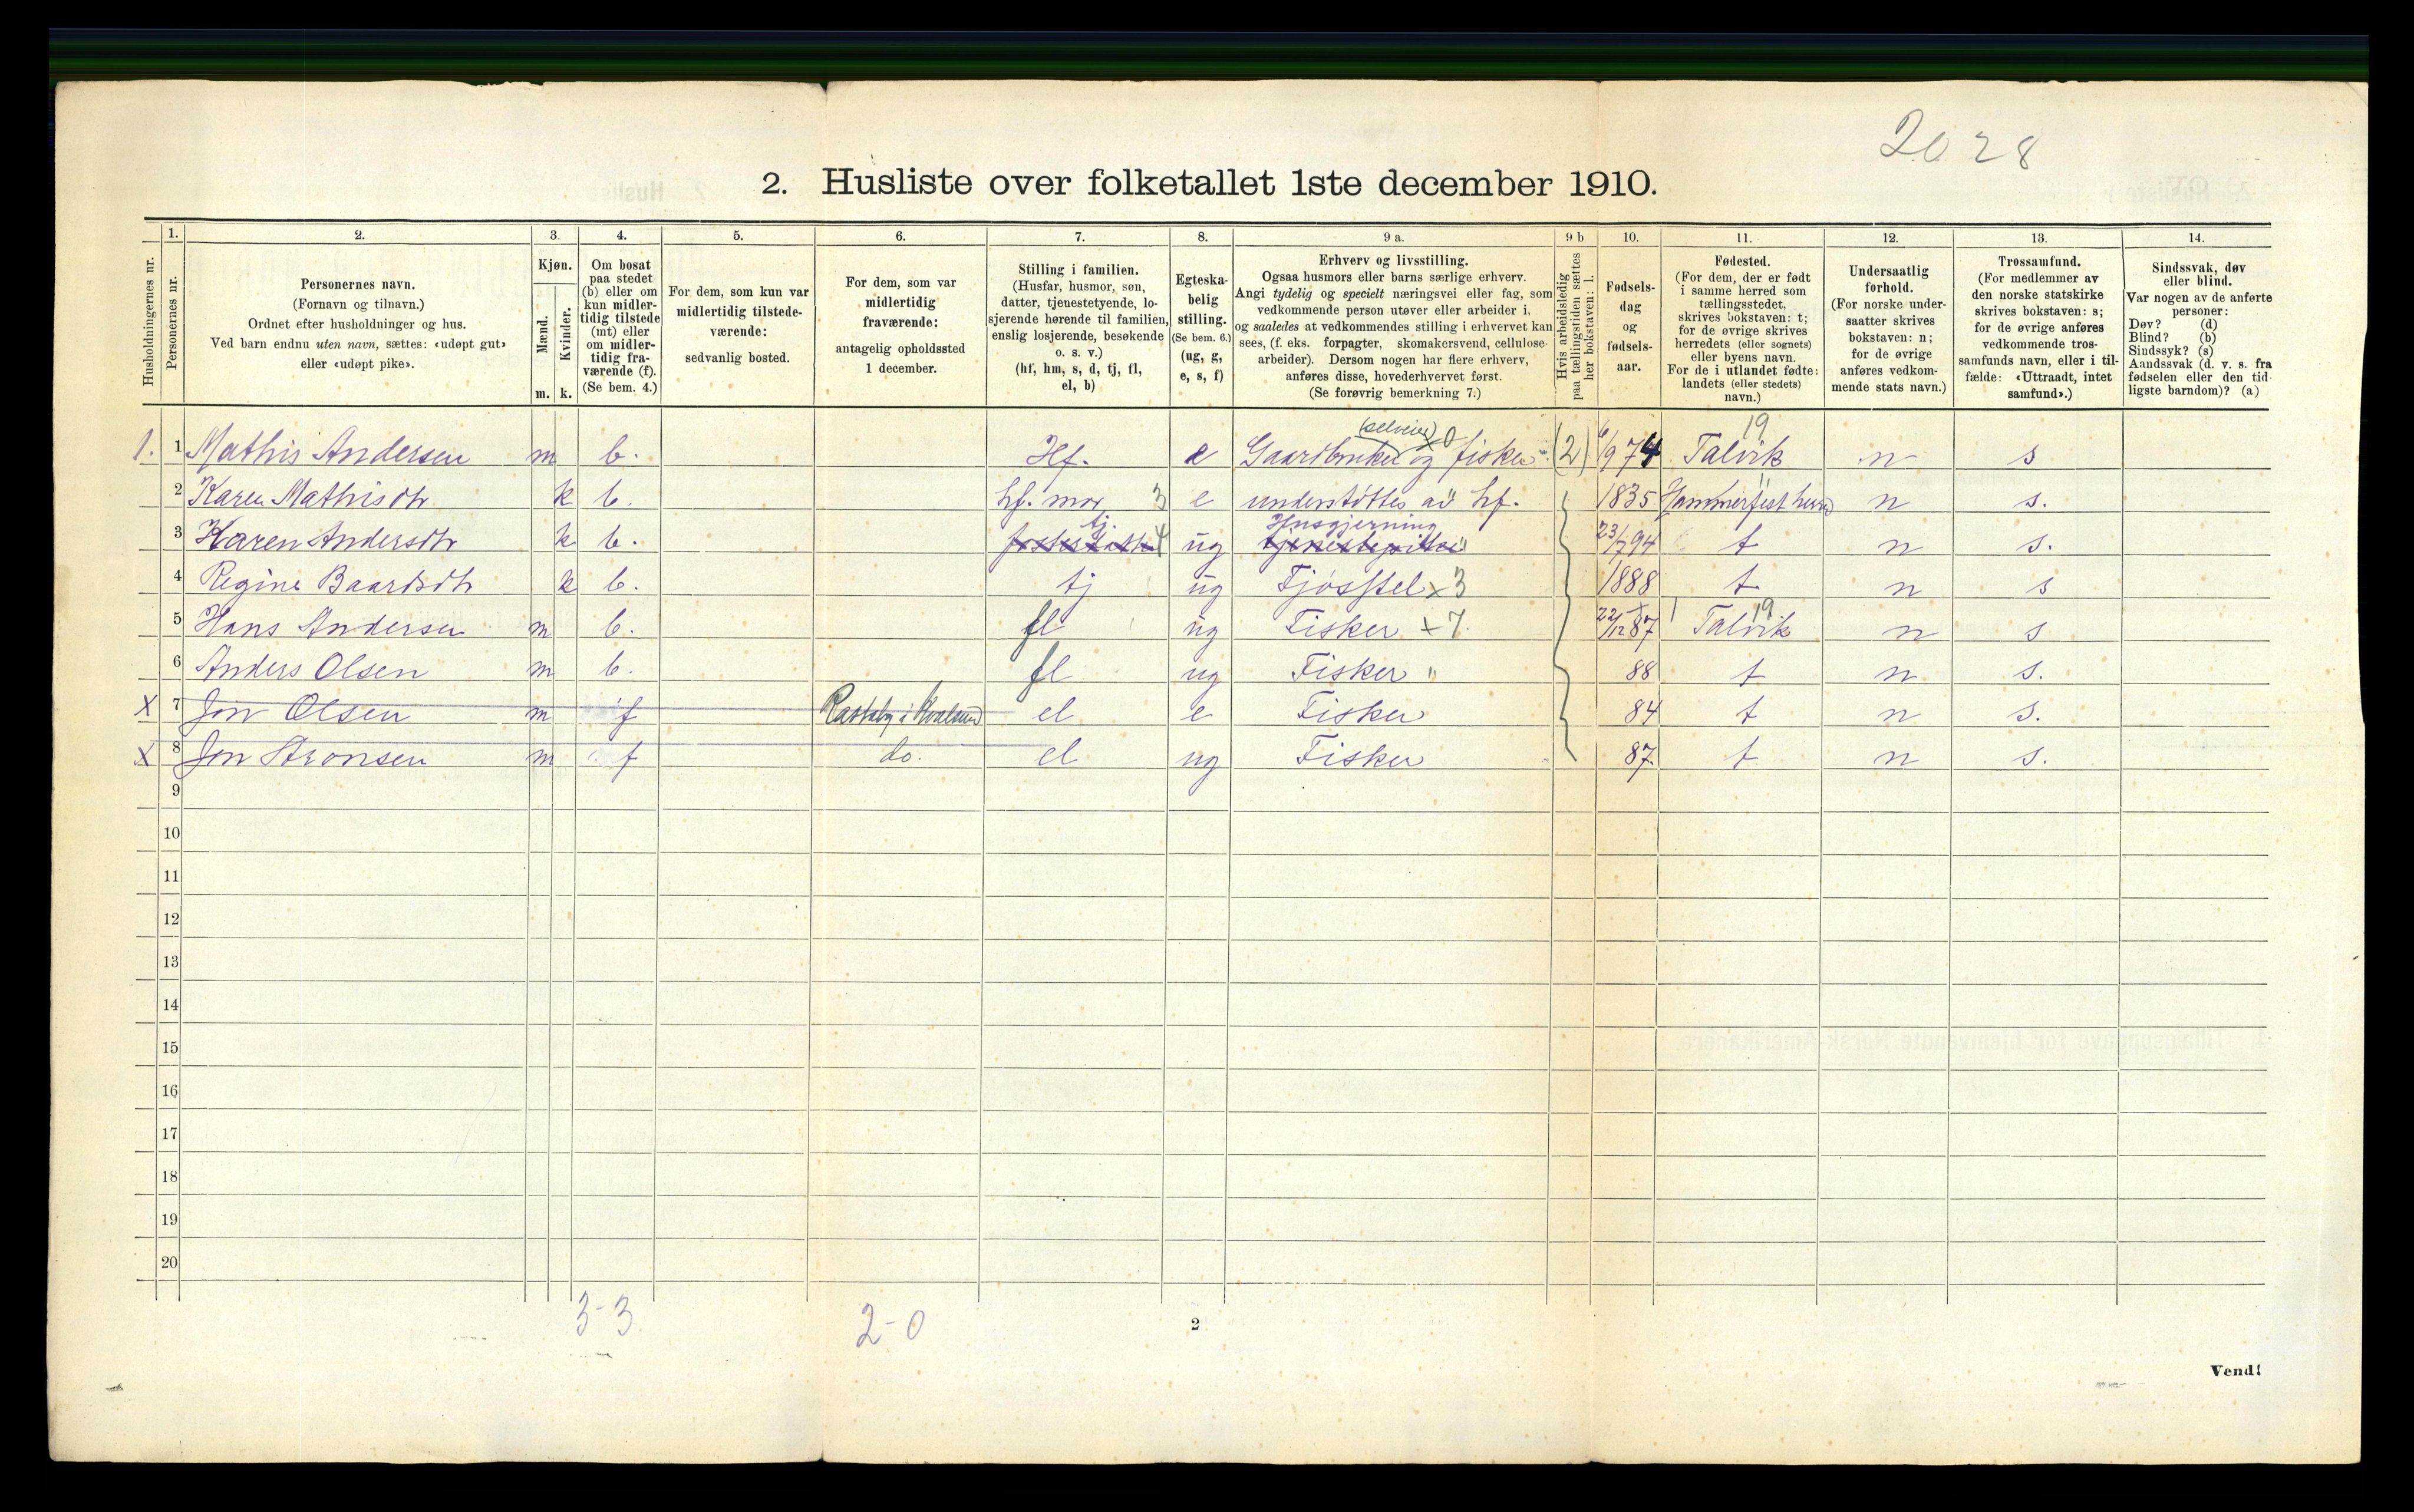 2028
2. Husliste over folketallet 1ste december 1910.
Husholdningernes nr.
1. Personernes nr.
2. Personernes navn. (Fornavn og tilnavn.) Ordnet efter husholdninger og hus. Ved barn endnu uten navn, sættes: «udøpt gut» eller «udøpt pike».
3. Kjøn. Mænd. m. Kvinder. k.
4. Om bosat paa stedet (b) eller om kun midlertidig tilstede (mt) eller om midlertidig fraværende (f). (Se bem. 4.)
5. For dem, som kun var midlertidig tilstedeværende: sedvanlig bosted.
6. For dem, som var midlertidig fraværende: antagelig opholdssted 1 december.
7. Stilling i familien. (Husfar, husmor, søn, datter, tjenestetyende, losjerende hørende til familien, enslig losjerende, besøkende o. s. v.) (hf, hm, s, d, tj, fl, el, b)
8. Egteskabelig stilling. (Se bem. 6.) (ug, g, e, s, f)
9 a. Erhverv og livsstilling. Ogsaa husmors eller barns særlige erhverv. Angi tydelig og specielt næringsvei eller fag, som vedkommende person utøver eller arbeider i, og saaledes at vedkommendes stilling i erhvervet kan sees, (f. eks. forpagter, skomakersvend, cellulosearbeider). Dersom nogen har flere erhverv, anføres disse, hovederhvervet først. (Se forøvrig bemerkning 7.)
9 b Hvis arbeidsledig paa tællingstiden sættes her bokstaven: l.
10. Fødselsdag og fødselsaar.
11. Fødested. (For dem, der er født i samme herred som tællingsstedet, skrives bokstaven: t; for de øvrige skrives herredets (eller sognets) eller byens navn. For de i utlandet fødte: landets (eller stedets) navn.)
12. Undersaatlig forhold. (For norske undersaatter skrives bokstaven: n; for de øvrige anføres vedkommende stats navn.)
13. Trossamfund. (For medlemmer av den norske statskirke skrives bokstaven: s; for de øvrige anføres vedkommende trossamfunds navn, eller i tilfælde: «Uttraadt, intet samfund».)
14. Sindssvak, døv eller blind. Var nogen av de anførte personer: Døv? (d) Blind? (b) Sindssyk? (s) Aandssvak (d. v. s. fra fødselen eller den tidligste barndom)? (a)
1. 1 Mathis Andersen m b. Hf. e Gaardbruker (selveier) x0 og fisker (2) 6/9 74 Talvik 19 n s
2 Karen Mathisdtr k b. hf. mor 3 e understøttes av hf. 1835 Hammerfest herred n s.
3 Karen Andersdtr k b. tj. 4 ug Husgjerning 23/7 94 t n s.
4 Regine Baardsdtr k b. tj ug Fjøsstel x3 1888 t n s
5 Hans Andersen m b. fl ug Fisker x7 22/12 87 Talvik 19 n s
6 Anders Olsen m b. fl ug Fisker " 88 t n s.
X 7 Jon Olsen m f i Kvalsund el e Fisker 84 t n s.
X 8 Jon Aronsen m f do. el ug Fisker 87 t n s.
9
10
11
12
13
14
15
16
17
18
19
20
3-3
2-0
2
Vend!